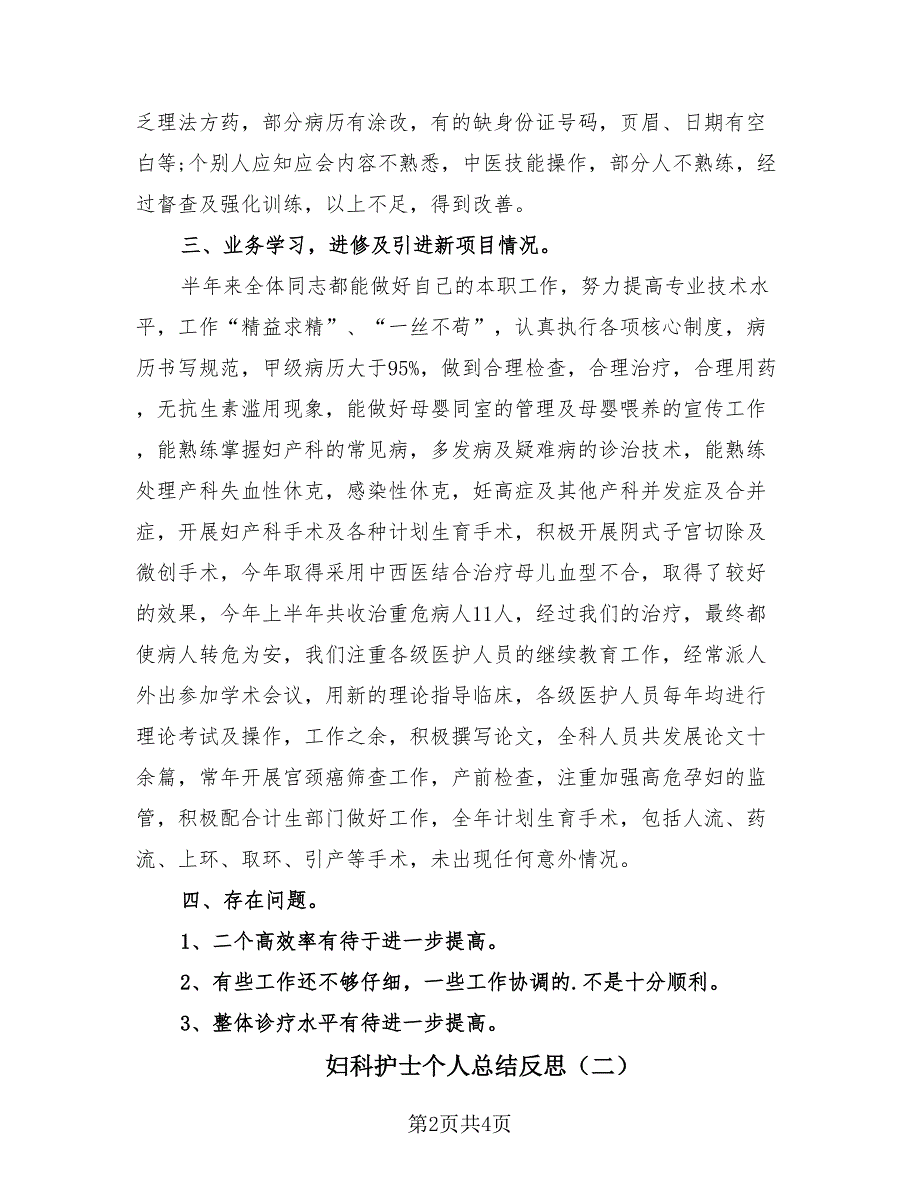 乏理法方药，部分病历有涂改，有的缺身份证号码，页眉、日期有空
白等;个别人应知应会内容不熟悉，中医技能操作，部分人不熟练，经
过督查及强化训练，以上不足，得到改善。
三、业务学习，进修及引进新项目情况。
半年来全体同志都能做好自己的本职工作，努力提高专业技术水
平，工作“精益求精”、“一丝不苟”，认真执行各项核心制度，病
历书写规范，甲级病历大于95%，做到合理检查，合理治疗，合理用药
，无抗生素滥用现象，能做好母婴同室的管理及母婴喂养的宣传工作
，能熟练掌握妇产科的常见病，多发病及疑难病的诊治技术，能熟练
处理产科失血性休克，感染性休克，妊高症及其他产科并发症及合并
症，开展妇产科手术及各种计划生育手术，积极开展阴式子宫切除及
微创手术，今年取得采用中西医结合治疗母儿血型不合，取得了较好
的效果，今年上半年共收治重危病人11人，经过我们的治疗，最终都
使病人转危为安，我们注重各级医护人员的继续教育工作，经常派人
外出参加学术会议，用新的理论指导临床，各级医护人员每年均进行
理论考试及操作，工作之余，积极撰写论文，全科人员共发展论文十
余篇，常年开展宫颈癌筛查工作，产前检查，注重加强高危孕妇的监
管，积极配合计生部门做好工作，全年计划生育手术，包括人流、药
流、上环、取环、引产等手术，未出现任何意外情况。
四、存在问题。
1、二个高效率有待于进一步提高。
2、有些工作还不够仔细，一些工作协调的.不是十分顺利。
3、整体诊疗水平有待进一步提高。
妇科护士个人总结反思（二）
第2页共4页